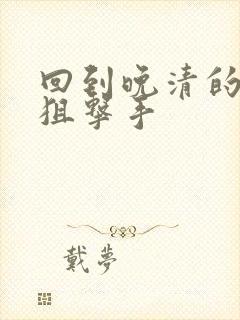 回到晚清的
狙擊手
戴夢